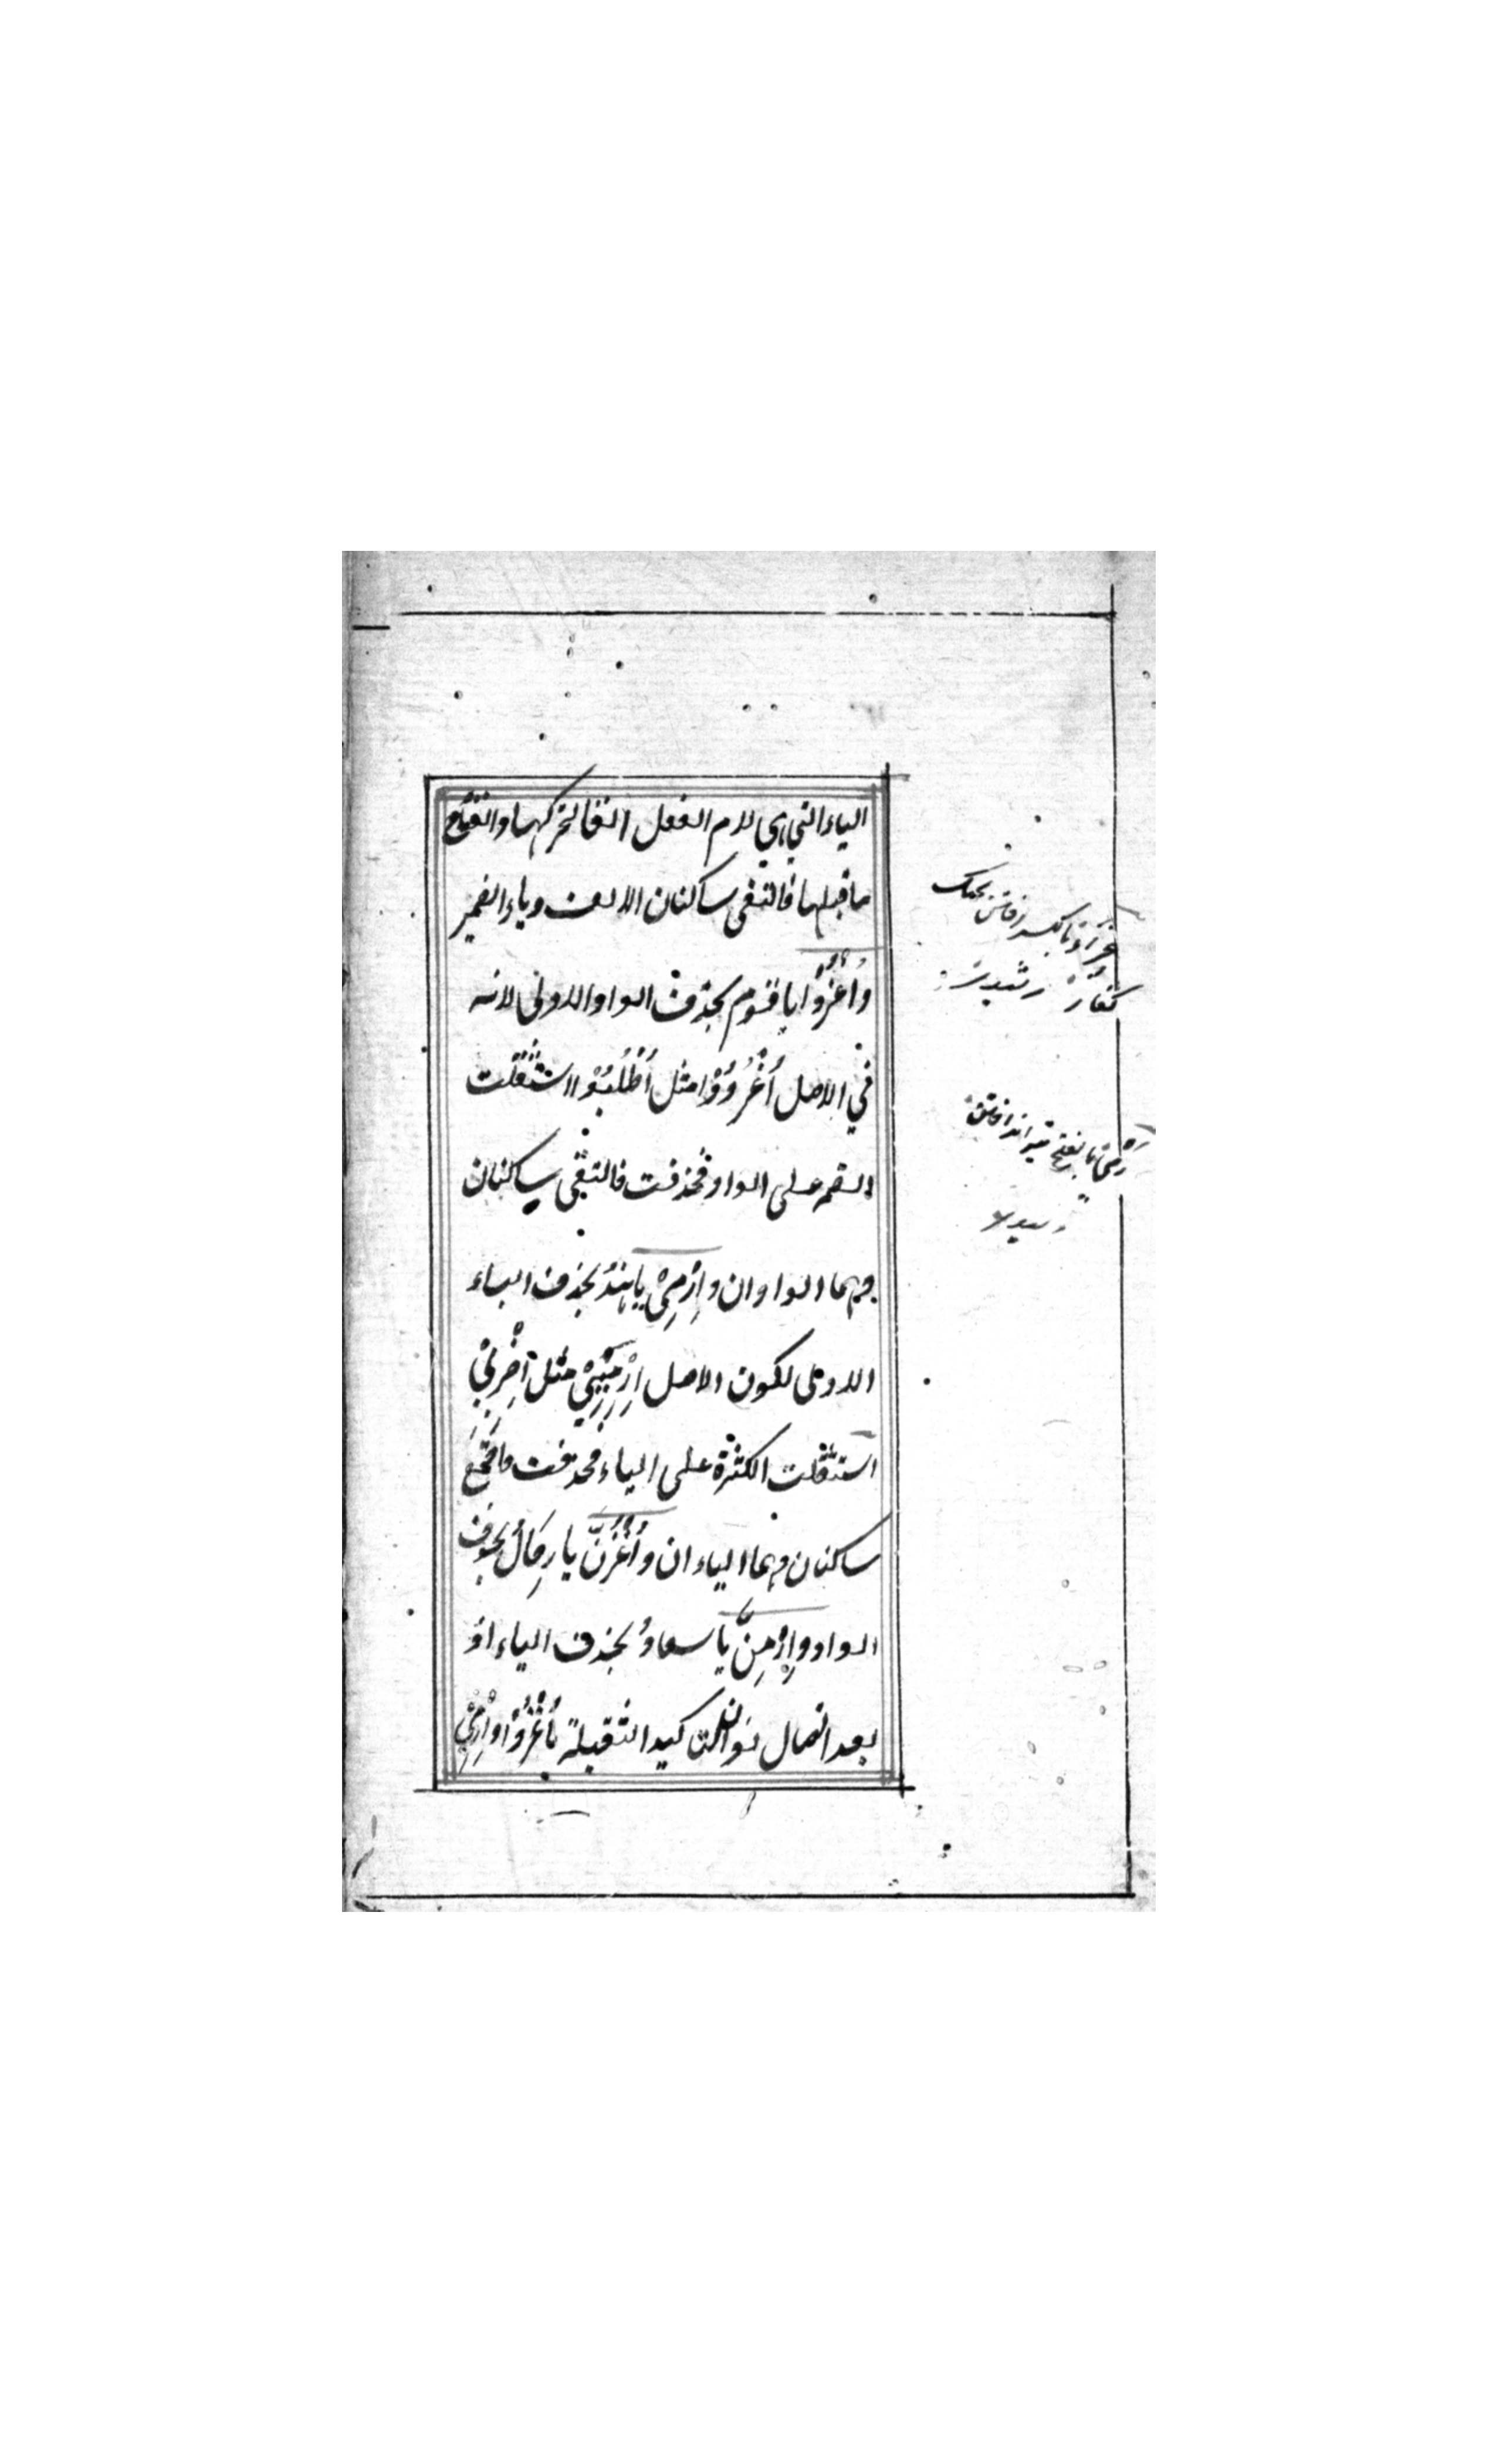 الياء التي هي لام الفعل الفا لتحركها وانفتاح
ما قبلها فالتقى ساكنان الالف وياء الضمير
وَاُغْزُوْا يا قوم بحذف الواو الاولى لانه
في الاصل اُغْزُوُوْا مثل اُطْلُبُوْا استثقلت
الضمة على الواو فحذفت فالتقى ساكنان
وهما الواوان وَاِرْمِيْ يا هِنْدُ بحذف الياء
الاولى لكون الاصل اِرْمِيِيْ مثل اِضْرِبِيْ
استثقلت الكسرة على الياء فحذفت فاجتمع
ساكنان وهما الياءان وَاُغْزُنَّ يا رِجَالُ بحذف
الواو واِرْمِنَّ يا سعادُ بحذف الياء اذ
بعد اتصال نون التاكيد الثقيلة باُغْزُوْا واِرْمِيْ
رشيدى